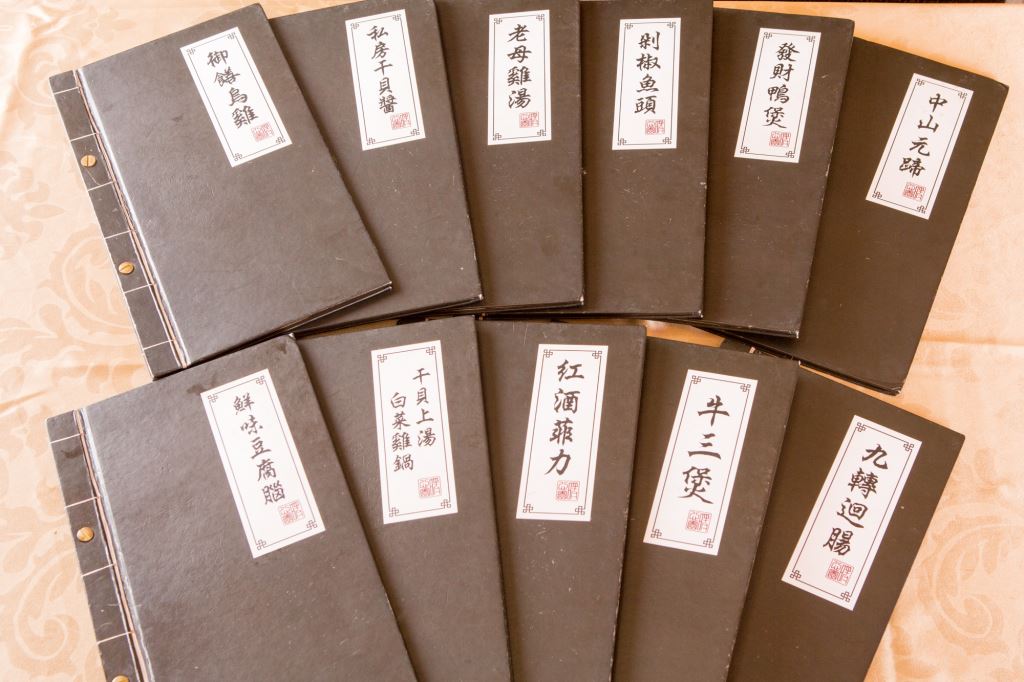 御膳烏雞
私房干貝醬
老母雞湯
剁椒魚頭
發財鴨煲
中山元蹄
鮮味豆腐腦
干貝上湯
白菜雞鍋
紅酒菲力
牛三煲
九轉迴腸